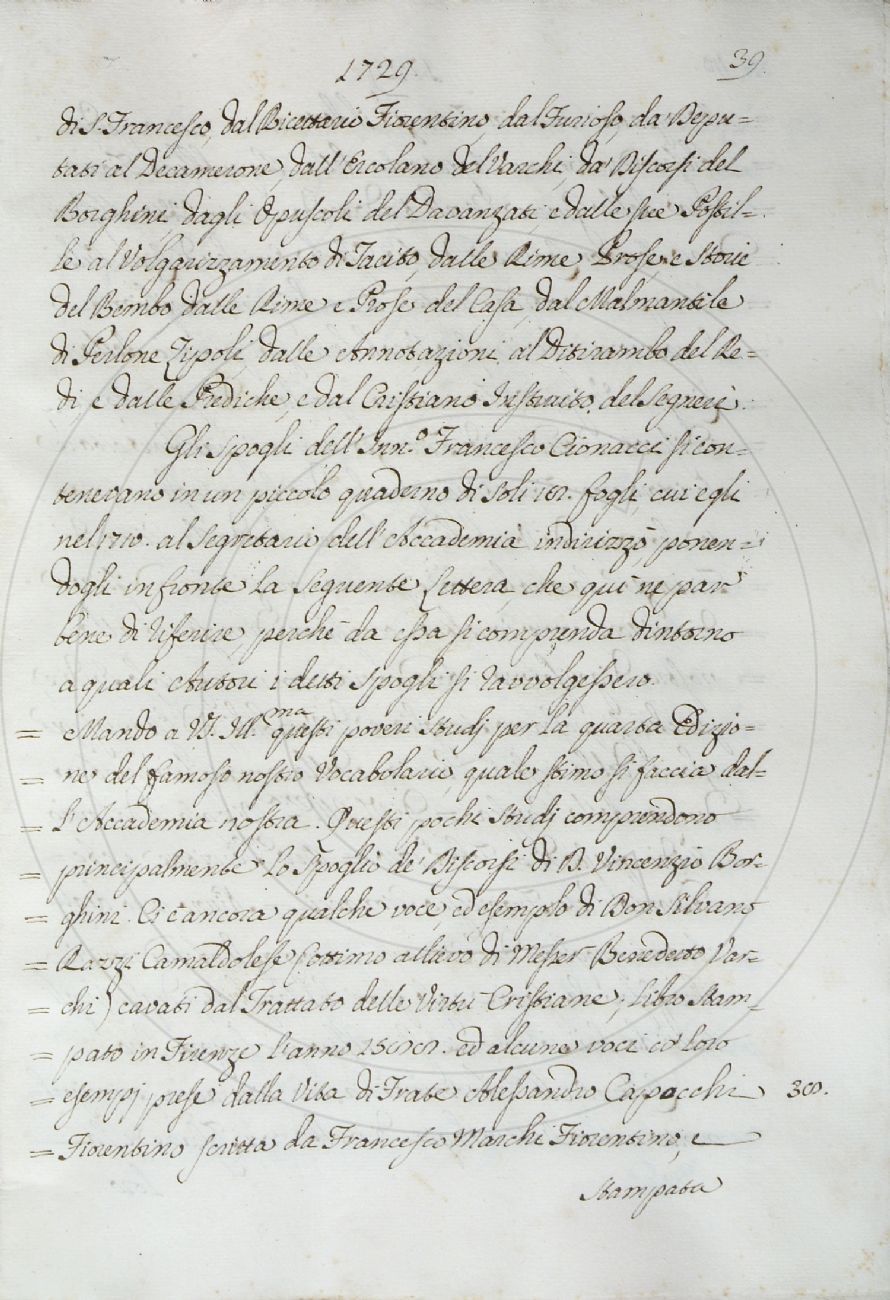 1729.
39.
di S. Francesco, dal Ricettario Fiorentino, dal Furioso, da' Depu=
tati al Decamerone, dall'Ercolano del Varchi, da' Discorsi del
Borghini, dagli Opuscoli del Davanzati, e dalle sue Postil=
le al Volgarizzamento di Tacito, dalle Rime, Prose, e Storie
del Bembo dalle Rime e Prose del Casa, dal Malmantile
di Perlone Zipoli, dalle Annotazioni al Ditirambo del Re=
di e dalle Prediche, e dal Cristiano Instruito del Segneri.
Gli spogli dell'Inn.º Francesco Cionacci si con=
tenevano in un piccolo quaderno di soli fogli, cui egli
nel 1710. al Segretario dell'Accademia indirizzò, ponen=
dogli in fronte la seguente Lettera, che quì ne par
bene di riferire, perchè da essa si comprenda dintorno
a quali Autori i detti spogli si ravvolgessero.
= Mando a V.S. Ill.ma questi poveri Studj per la quarta Edizio=
= ne del famoso nostro Vocabolario, quale stimo si faccia dal=
= l'Accademia nostra. Questi pochi Studj comprendono
= principalmente lo Spoglio de' Discorsi di D. Vincenzio Bor=
= ghini. Ci è ancora qualche voce, ed esemplo di Don Silvano
= Razzi Camaldolese (ottimo allievo di Messer Benedetto Var=
= chi) cavati dal Trattato delle Virtù Cristiane, libro stam=
= pato in Firenze l'anno ed alcune voci co' loro
= esempj prese dalla Vita di Frate Alessandro Capocchi
300.
= Fiorentino scritta da Francesco Marchi Fiorentino, e
Stampata